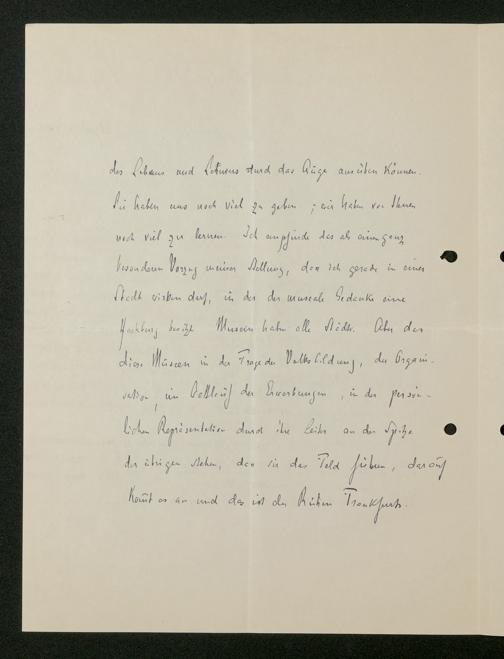 des Lebens und Lernens durch das Auge ausüben können.
Sie haben uns noch viel zu geben ; wir haben von Ihnen
noch viel zu lernen. Ich empfinde das als einen ganz
besonderen Vorzug meiner Stellung, dass ich gerade in einer
Stadt wirken darf, in der der museale Gedanke eine
Hochburg besitzt. Museen haben alle Städte. Aber dass
diese Museen in der Frage der Volksbildung, der Organi-
sation, im Wettlauf der Erwerbungen, in der persön-
lichen Repräsentation durch ihre Leiter an der Spitze
der übrigen stehen, dass sie das Feld führen, darauf
kommt es an und das ist der Ruhm Frankfurts.